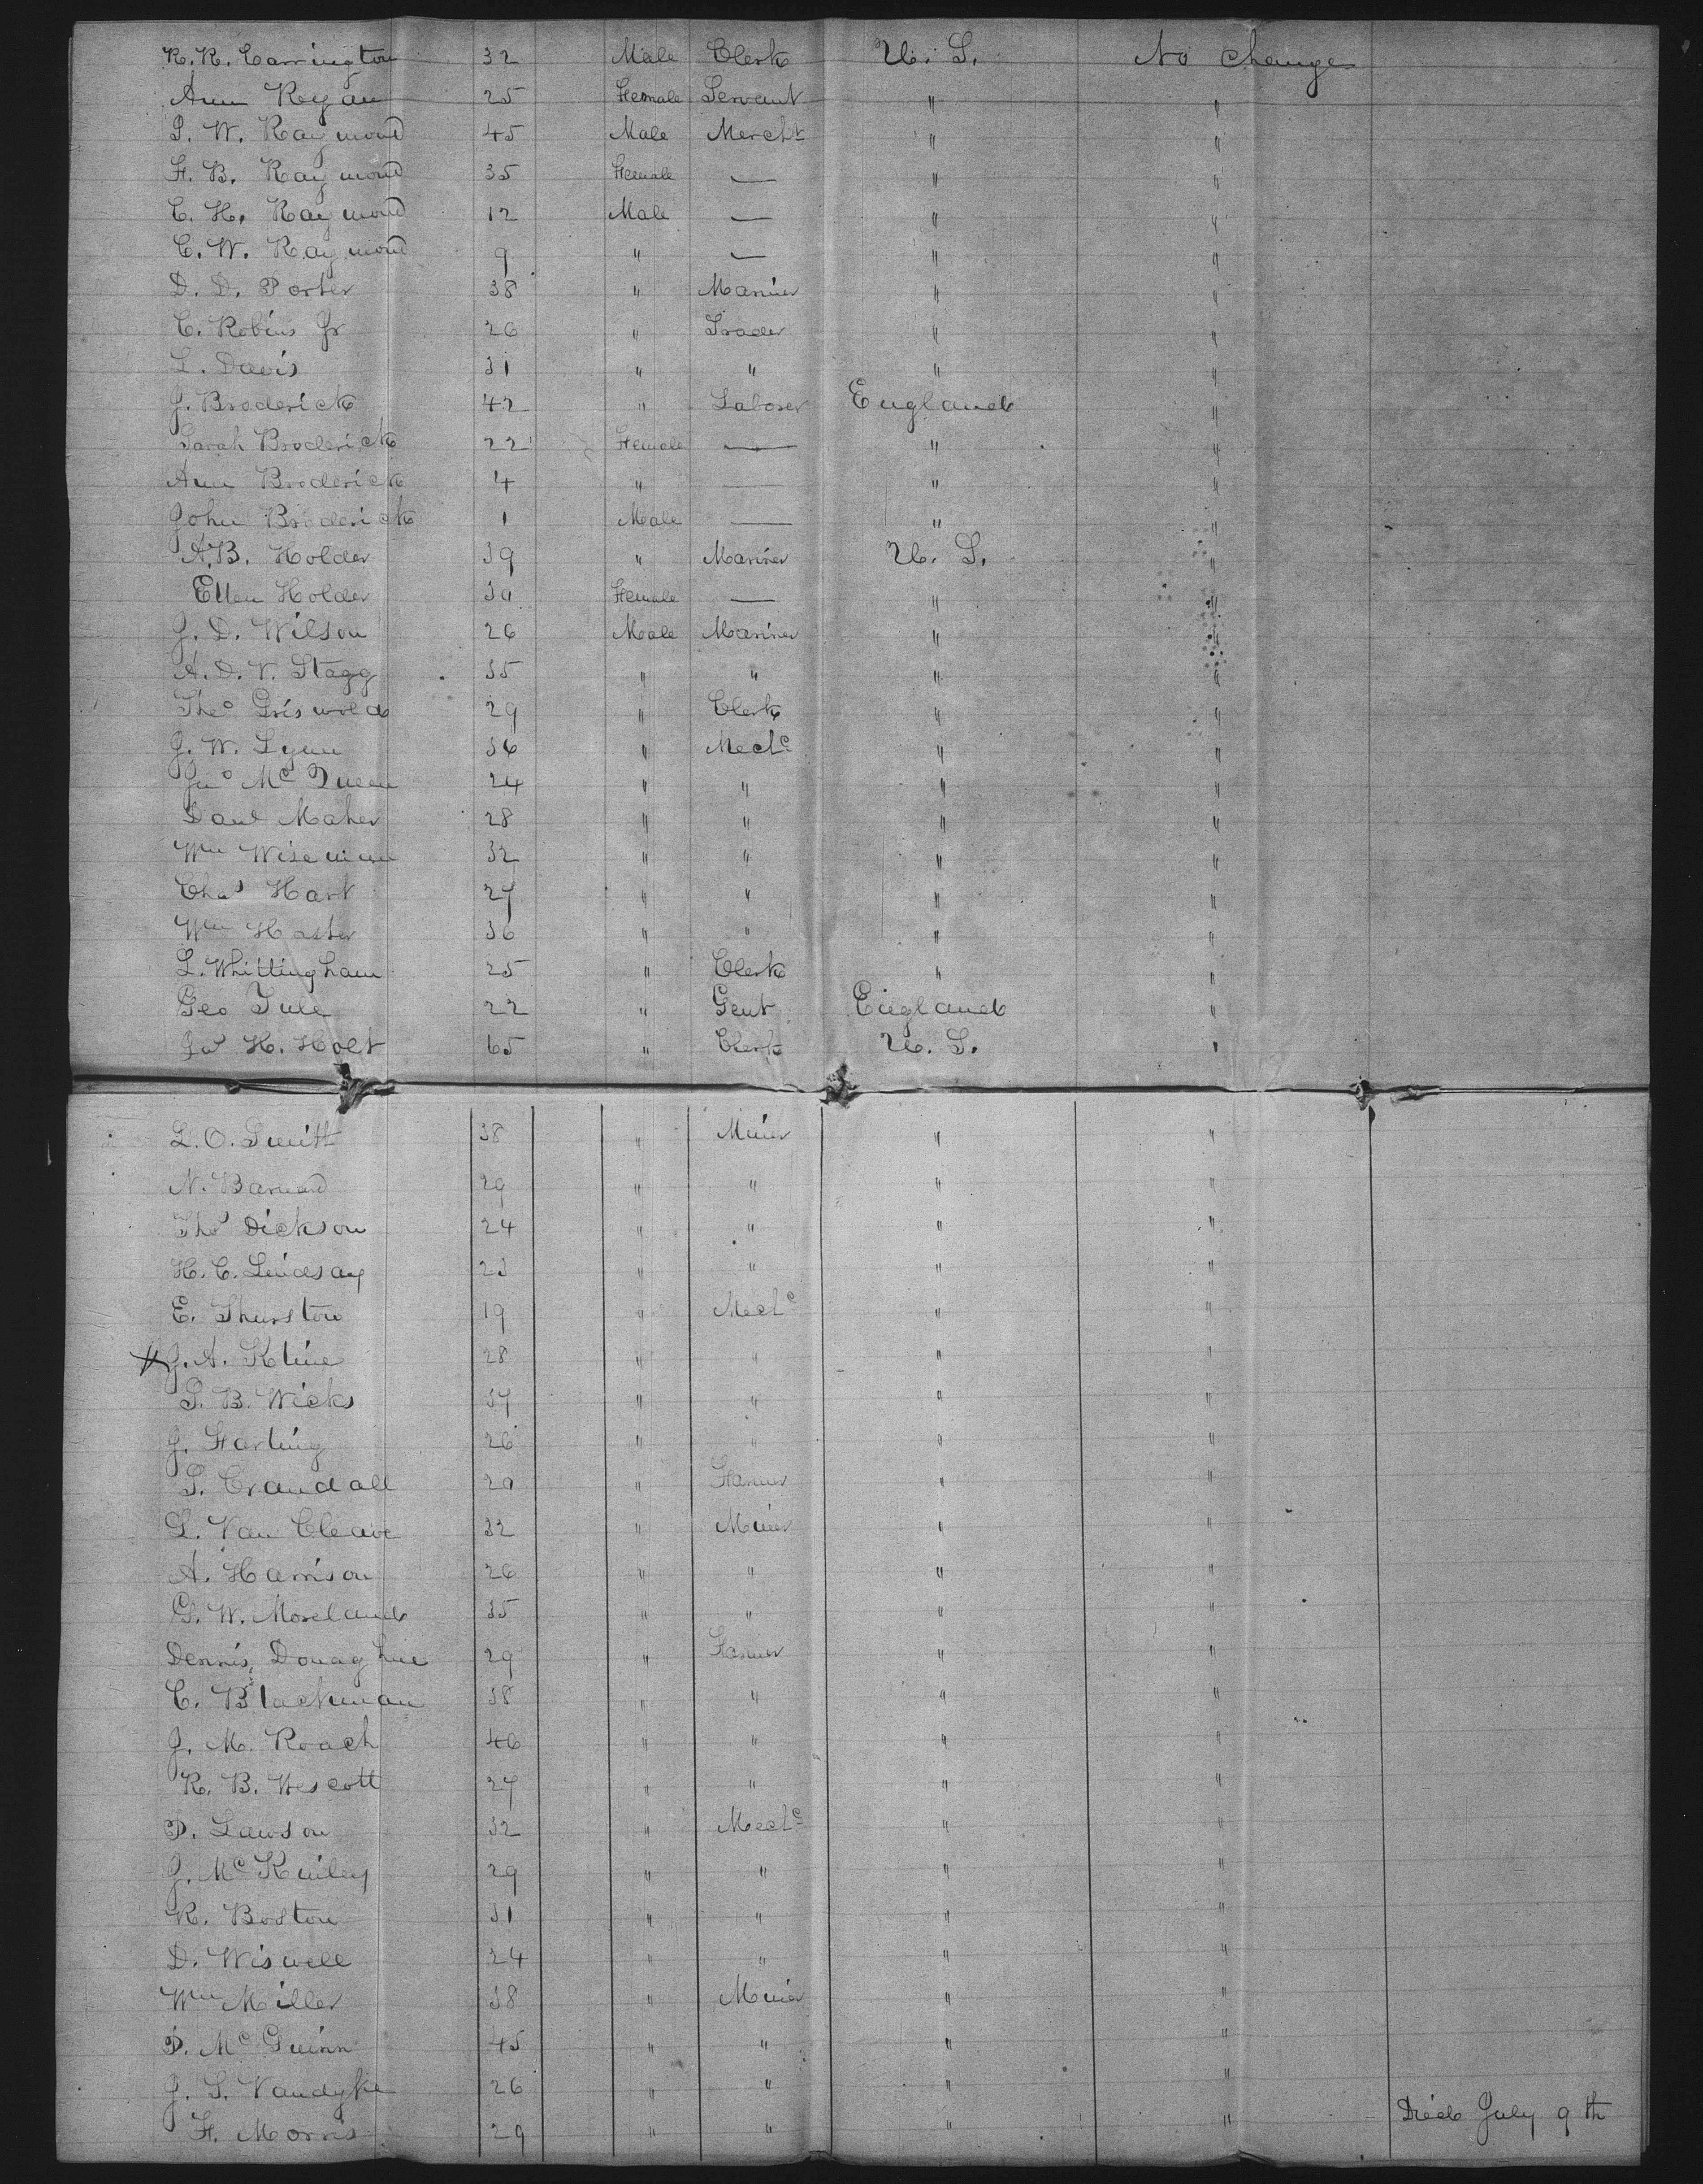 R. R. Carrington 32 Male Clerk U. S. No Change
Ann Regan 25 Female Servant " "
S. W. Raymond 45 Male Mercht " "
F. B. Raymond 35 Female — " "
C. H. Raymond 12 Male — " "
C. W. Raymond 9 " — " "
D. D. Porter 38 " Mariner " "
C. Robins Jr 26 " Trader " "
L. Davis 31 " " " "
J. Broderick 42 " Laborer England "
Sarah Broderick 22 Female — " "
Ann Broderick 4 " — " "
John Broderick 1 Male — " "
A. B. Holder 39 " Mariner U. S. "
Ellen Holder 30 Female — " "
J. D. Wilson 26 Male Mariner " "
A. D. V. Stagg 35 " " " "
Theo Griswold 29 " Clerk " "
J. W. Lynn 36 " Mechc " "
Jno McQueen 24 " " " "
Danl Maher 28 " " " "
Wm Wiseman 32 " " " "
Chas Hart 27 " " " "
Wm Haster 36 " " " "
L. Whittingham 25 " Clerk " "
Geo Tule 22 " Gent England "
Js H. Holt 65 " Clerk U. S. "
L. O. Smith 38 " Miner " "
N. Barnard 29 " " " "
Thos Dickson 24 " " " "
H. C. Lindsay 23 " " " "
E. Thurston 19 " Mechc " "
J. A. Kline 28 " " " "
S. B. Wicks 37 " " " "
J. Farling 26 " " " "
S. Crandall 20 " Farmer " "
L. Van Cleave 32 " Miner " "
A. Harrison 26 " " " "
G. W. Moreland 35 " " " "
Dennis Donaghue 29 " Farmer " "
C. Blackman 38 " " " "
J. M. Roach 46 " " " "
R. B. Wescott 27 " " " "
P. Lawson 32 " Mechc " "
J. McKinley 29 " " " "
R. Boston 31 " " " "
D. Wiswell 24 " " " "
Wm Miller 38 " Miner " "
P. McGuinn 45 " " " "
J. S. Vandyke 26 " " " "
F. Morris 29 " " " " Died July 9th